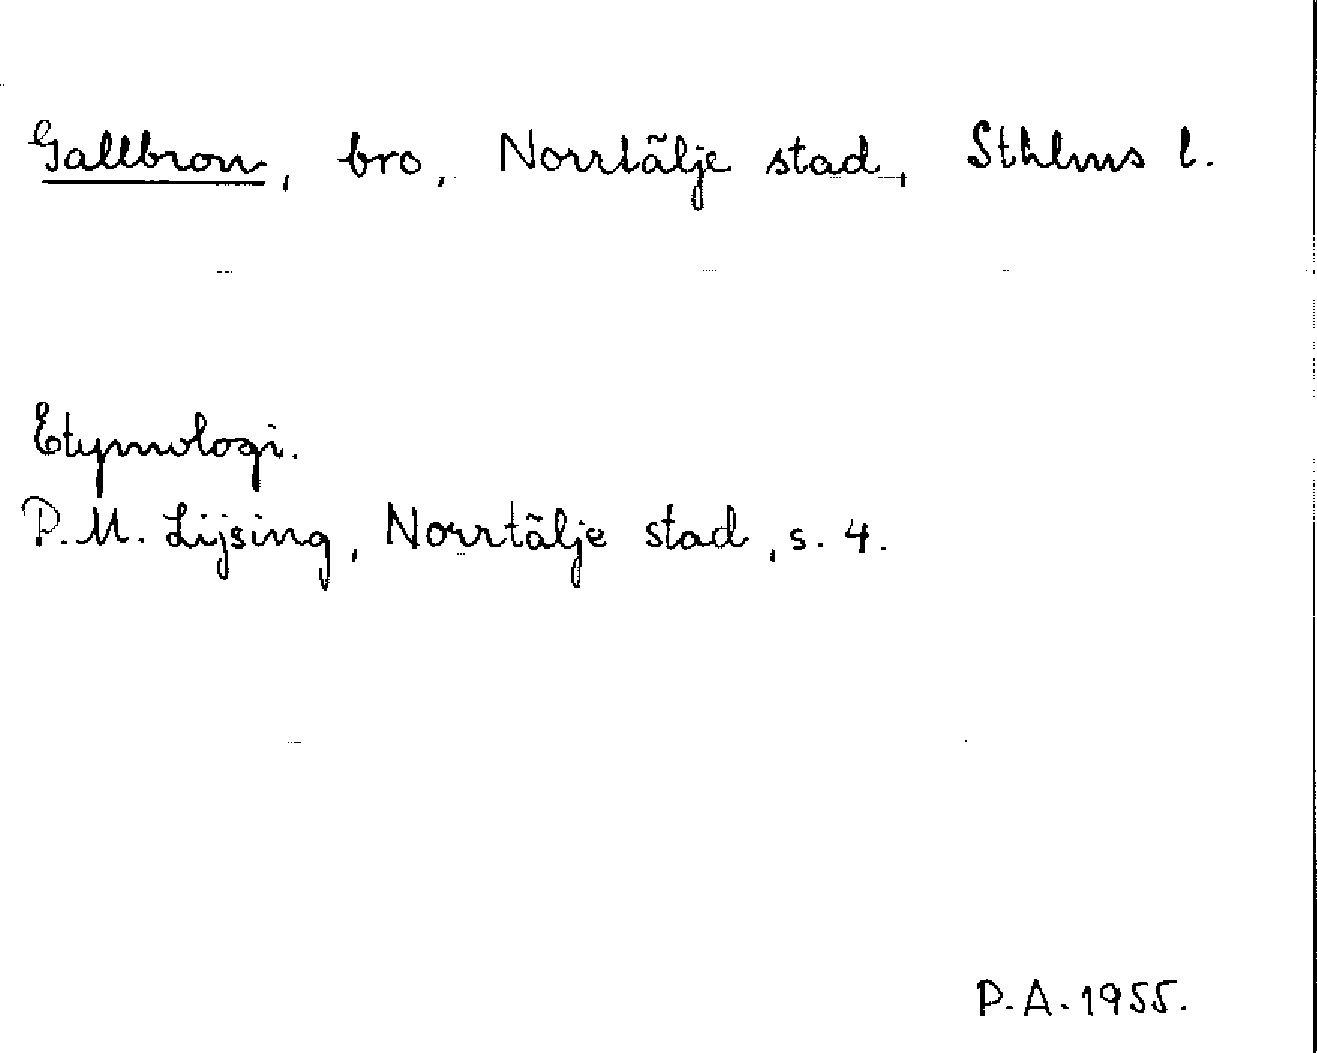 Gallbron, bro, Norrtälje stad, Sthlms l.
Etymologi.
P.M. Lijsing, Norrtälje stad, s. 4.
P.A. 1955.